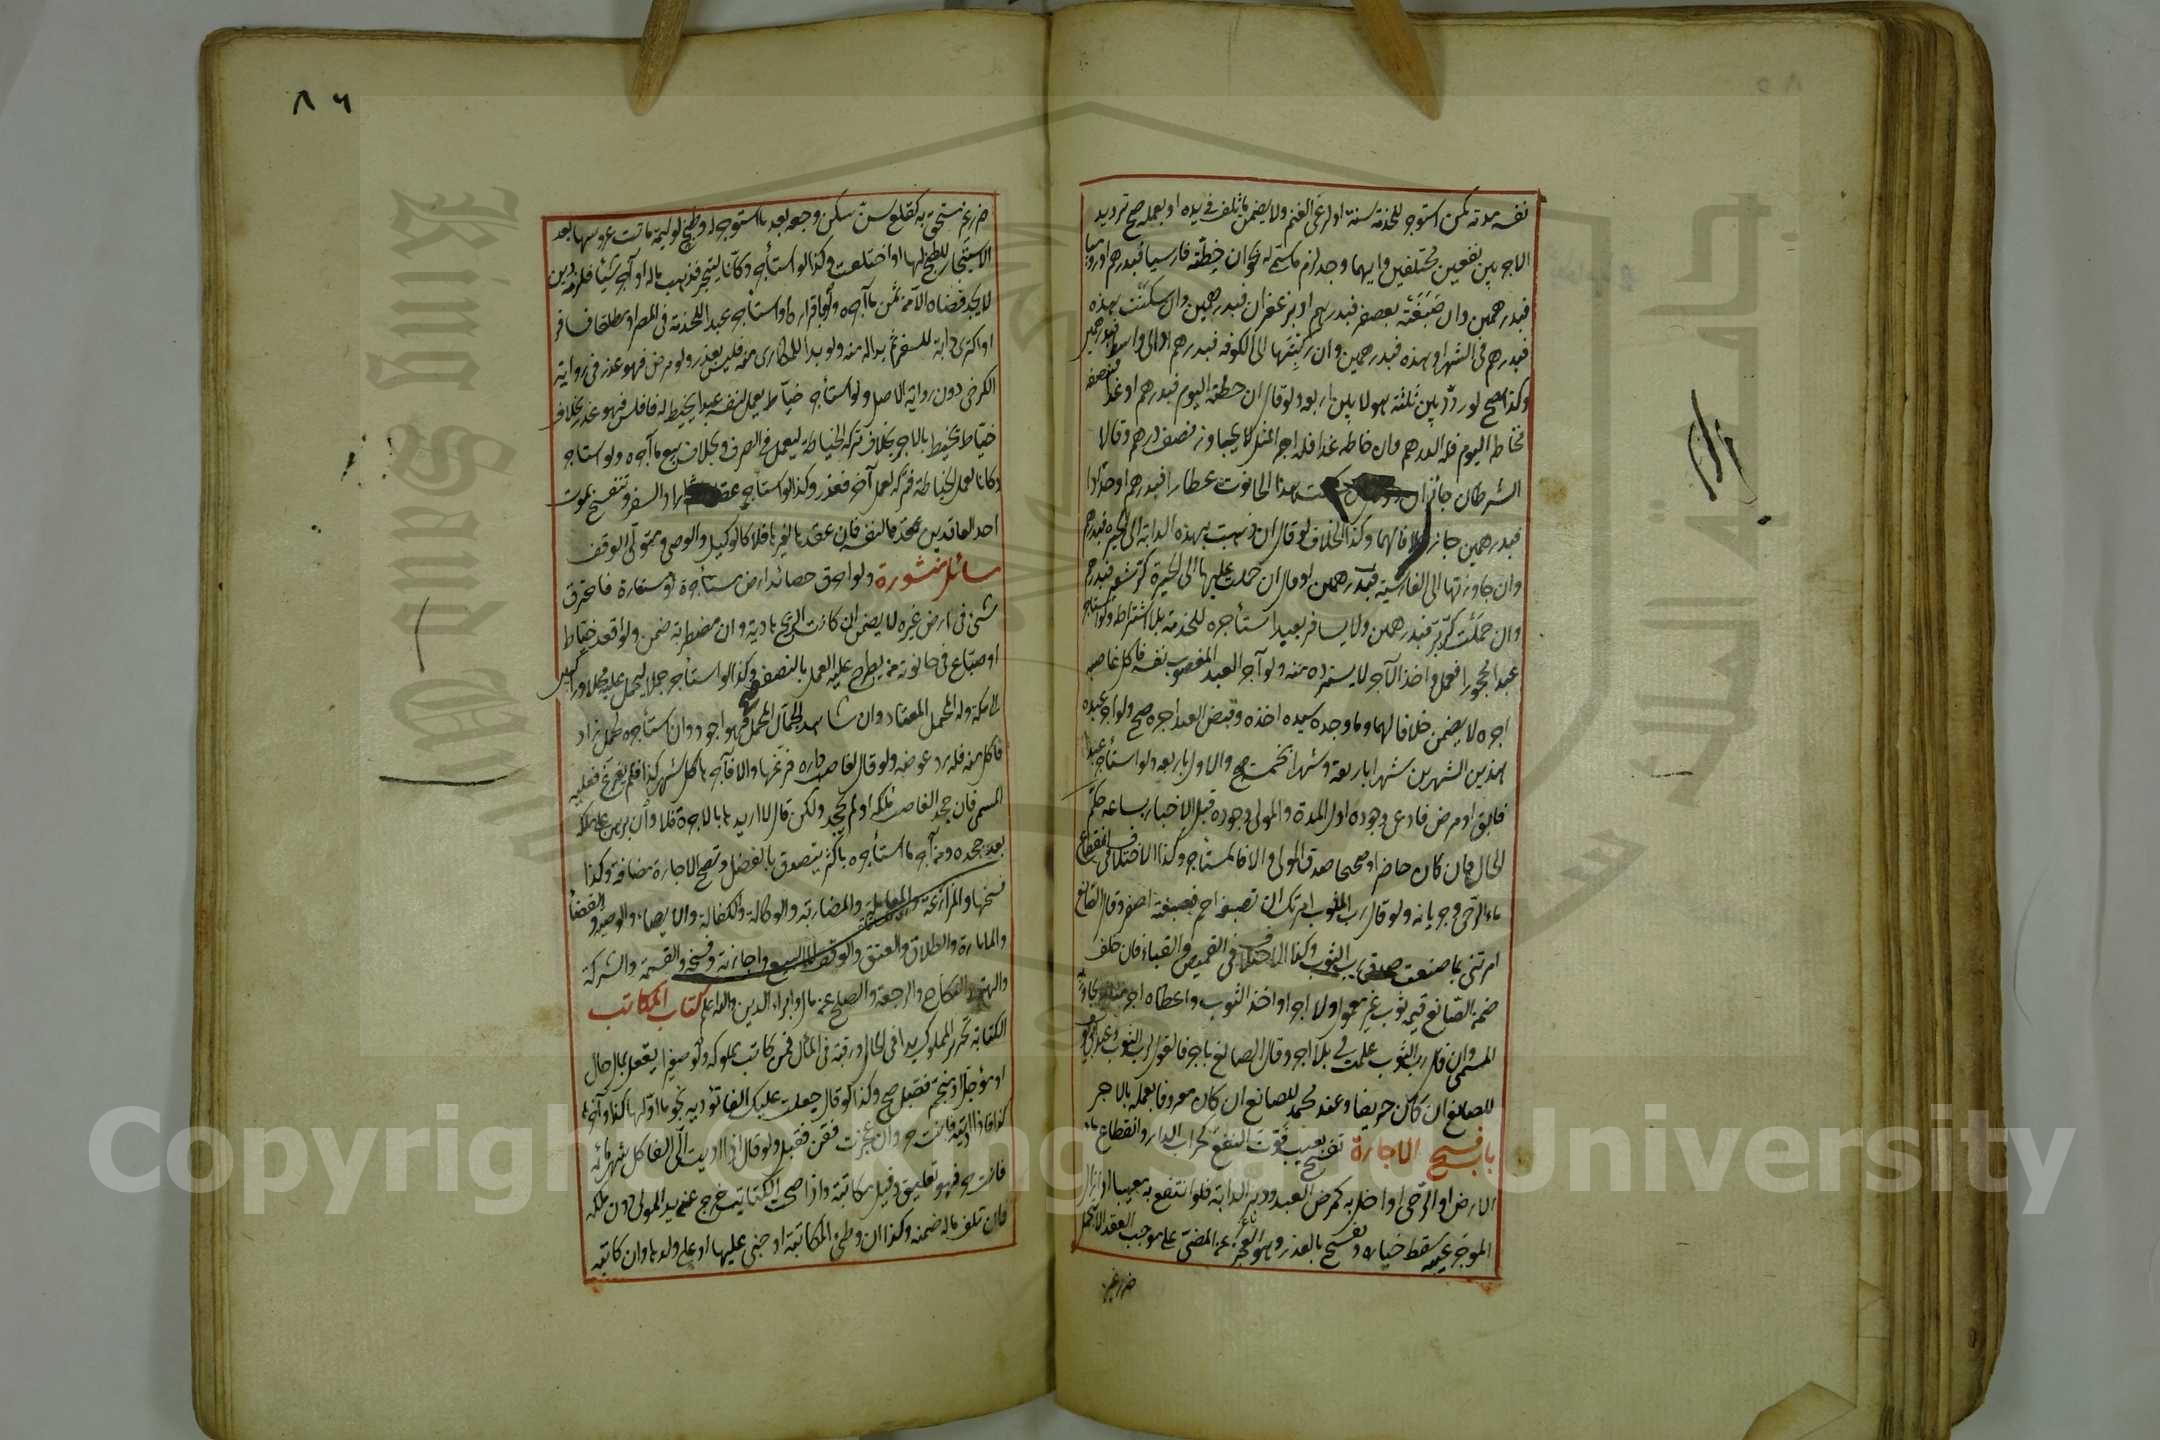 نفسه مدته كمن استوجر للخدمة سنة او لرعى الغنم ولا يضمن ما تلف فى يده او بعمله صح ترديد
الاجر بين نفعين مختلفين وايهما وجد لزم ما سمى له نحو ان خطته فارسيا فبدرهم او روميا
فبدرهمين وان صبغته بعصفر فبدرهم او بزعفران فبدرهمين وان سكنت هذه
فبدرهم فى الشهر او هذه فبدرهمين وان ركبتها الى الكوفه فبدرهم او الى واسط فبدرهمين
وكذا يصح لو ردد بين ثلثة هولا بين اربعه ولو قال ان خطته اليوم فبدرهم او غدا فنصفه
فخاطه اليوم فله الدرهم وان خاطه غدا فله اجر المثل لا يجاوز نصف درهم وقالا
الشرطان جائزان هذا الحانوت عطارا فبدرهم او حدادا
فبدرهمين جاز خلافا لهما وكذا الخلاف لو قال ان ذهبت بهذه الدابة الى الحيرة فبدرهم
وان جاوزتها الى القادسية فبدرهمين او قال ان حملت عليها الى الحيرة كر شعير فبدرهم
وان حملت كر بر فبدرهمين ولا يسافر بعبد استأجره للخدمة بلا اشتراطه ولو استاجر
عبدا محجورا فعمل واخذ الآجر لا يسترده منه ولو آجر العبد المغصوب نفسه فاكل غاصبه
اجره لا يضمن خلافا لهما وما وجده سيده اخذه وقبض العبد اجره صح ولو اجر عبده
هذين الشهرين شهرا باربعة وشهرا بخمسة صح والاول باربعه ولو استأجر عبدا
فابق او مرض فادعى وجوده اول المدة والمولى وجوده قبل الاخبار بساعه حكم
الحال فان كان حاضرا او صحيحا صدق المولى والا فالمستاجر وكذا الاختلاف فى انقطاع
ماء الرحى وجريانه ولو قال رب الثوب امرتك ان تصبغ احمر فصبغته اصفر وقال الصانع
امرتنى بما صنعت صدق رب الثوب وكذا الاختلاف فى القميص والقباء فان حلف
ضمن الصانع قيمة ثوب غير معمول ولا اجر او اخذ الثوب واعطاه اجر مثله لا يجاوز
المسمى وان قال رب الثوب عملت لى بلا اجر وقال الصانع باجر فالقول لرب الثوب وعند ابى يوسف
للصانع ان كان حريفا وعند محمد للصانع ان كان معروفا بعمله بالاجر
باب فسخ الاجارة تفسخ بعيب فوت النفع كخراب الدار وانقطاع ماء
الارض او الرحى او اخل به كمرض العبد ودبر الدابة فلو انتفع به معيبا او ازال
الموجر عيبه سقط خياره وتفسخ بالعذر وهو العجز عن المضى على موجب العقد الا بتحمل
ضرر غير
٨٦
ضرر غير مستحق به كقلع سن سكن وجعه بعد ما استوجر له وطبخ لوليمة ماتت عروسها بعد
الاستيجار للطبخ لها او اختلعت وكذا لو استأجر دكانا ليتجر فذهب ماله او آجر شيئا فلزمه دين
لا يجد قضاه الا من ثمن ما آجره ولو باقراره او استأجر عبدا للخدمة فى المصر او مطلقا فسافر
او اكترى دابة للسفر ثم بدا له منه ولو بدا للمكارى منه فليس بعذر ولو مرض فهو عذر فى رواية
الكرخى دون رواية الاصل ولو استأجر خياط يعمل لنفسه عبدا يخيط له فافلس فهو عذر بخلاف
خياط يخيط بالاجر بخلاف تركه الخياطة ليعمل فى الصرف وبخلاف بيع ما آجره ولو استاجر
دكانا لعمل الخياطة فتركه لعمل آخر فعذر وكذا لو استاجر عقارا ثم اراد السفر وتنفسخ بموت
احد العاقدين عقدها لنفسه فان عقدها لغيره فلا كالوكيل والوصى ومتولى الوقف
مسائل منثورة ولو احرق حصائد ارض مستأجرة او مستعارة فاحترق
شئ فى ارض غيره لا يضمن ان كانت الريح هادية وان مضطربة ضمن ولو اقعد خياط
او صباغ فى حانوته من يطرح عليه العمل بالنصف صح وكذا لو استأجر جملا ليحمل عليه محملا وراكبين
الى مكة وله المحمل المعتاد وان شاهد الجمال المحمل فهو اجود وان استأجره لحمل زاد
فاكل منه فله رد عوضه ولو قال لغاصب داره فرغها والا فاجرتها كل شهر كذا فلم يفرغ فعليه
المسمى فان جحد الغاصب ملكه او لم يجحد ولكن قال لا اريدها بالاجرة فلا وان برهن على ملكه
بعد جحده ومن آجر ما استأجره باكثر يتصدق بالفضل وتصح الاجارة مضافة وكذا
فسخها والمزارعة والمعاملة والمضاربة والوكالة والكفالة والايصاء والوصية والقضاء
والامارة والطلاق والعتق والوقف لا البيع واجازته وفسخه والقسمة والشركة
والهبة والنكاح والرجعة والصلح عن مال وابراء الدين والله اعلم كتاب المكاتب
الكتابة تحرير المملوك يدا فى الحال ورقبة فى المآل فمن كاتب مملوكه ولو صغيرا يعقل بمال حال
او مؤجل او منجم فقبل صح وكذا لو قال جعلت عليك الفا تؤديه نجوما اولها كذا وآخرها
كذا فاذا اديته فانت حر وان عجزت فقن فقبل ولو قال اذا اديت الى الفا كل شهر مائه
فانت حر فهو تعليق وقيل مكاتبة واذا صحت الكتابة خرج عن يد المولى دون ملكه
فان تلف ماله ضمنه وكذا ان وطئ المكاتبة او جنى عليها او على ولدها وان كاتبه
King Saud University
Copyright © King Saud University